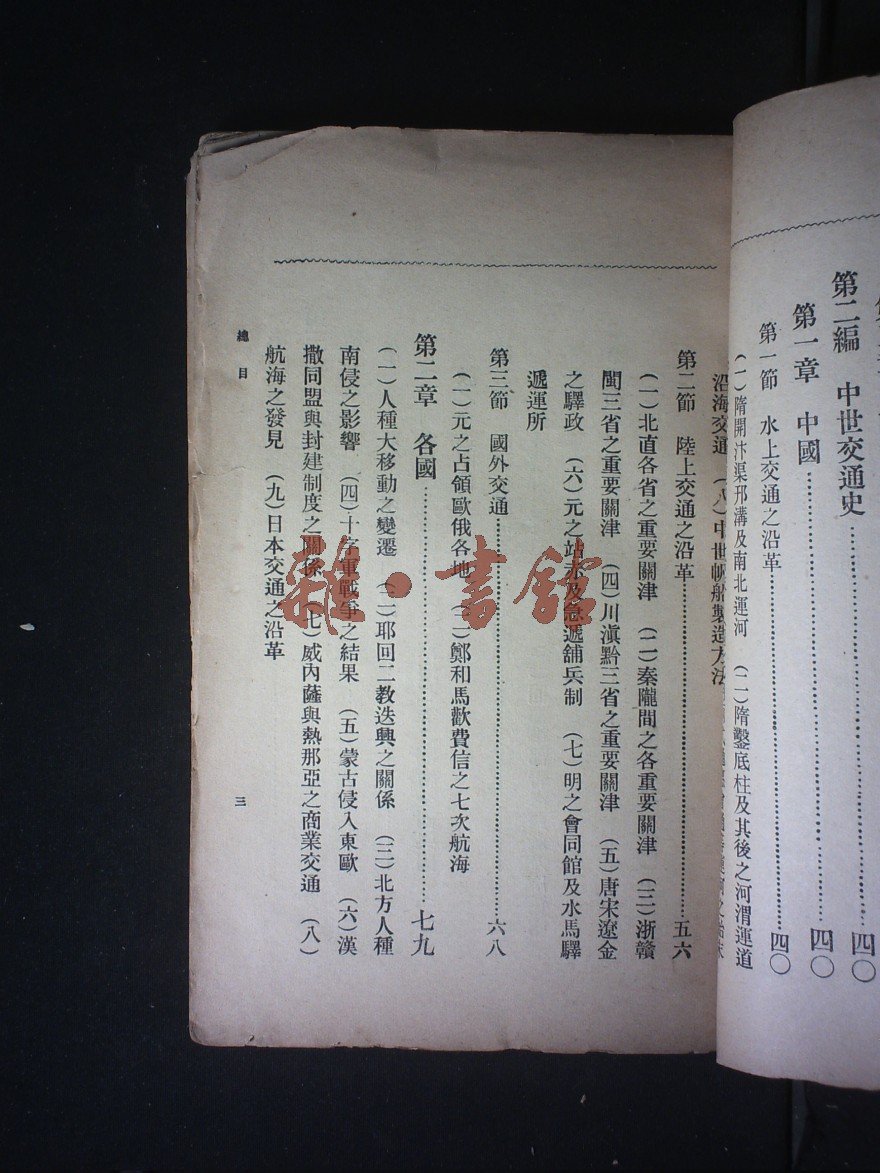 第二編　中世交通史……四〇
第一章　中國……四〇
第一節　水上交通之沿革……四〇
（一）隋開汴渠邗溝及南北運河　（二）隋鑿底柱及其後之河渭運道
沿海交通　（八）中世帆船製造方法
第二節　陸上交通之沿革……五六
（一）北直各省之重要關津　（二）秦隴間之各重要關津　（三）浙贛
閩三省之重要關津　（四）川滇黔三省之重要關津　（五）唐宋遼金
之驛政　（六）元之站赤及急遞舖兵制　（七）明之會同館及水馬驛
遞運所
第三節　國外交通……六八
（一）元之占領歐俄各地　（二）鄭和馬歡費信之七次航海
第二章　各國……七九
（一）人種大移動之變遷　（二）耶回二教迭興之關係　（三）北方人種
南侵之影響　（四）十字軍戰爭之結果　（五）蒙古侵入東歐　（六）漢
撒同盟與封建制度之關係　（七）威內薩與熱那亞之商業交通　（八）
航海之發見　（九）日本交通之沿革
總目
三
雜·書館